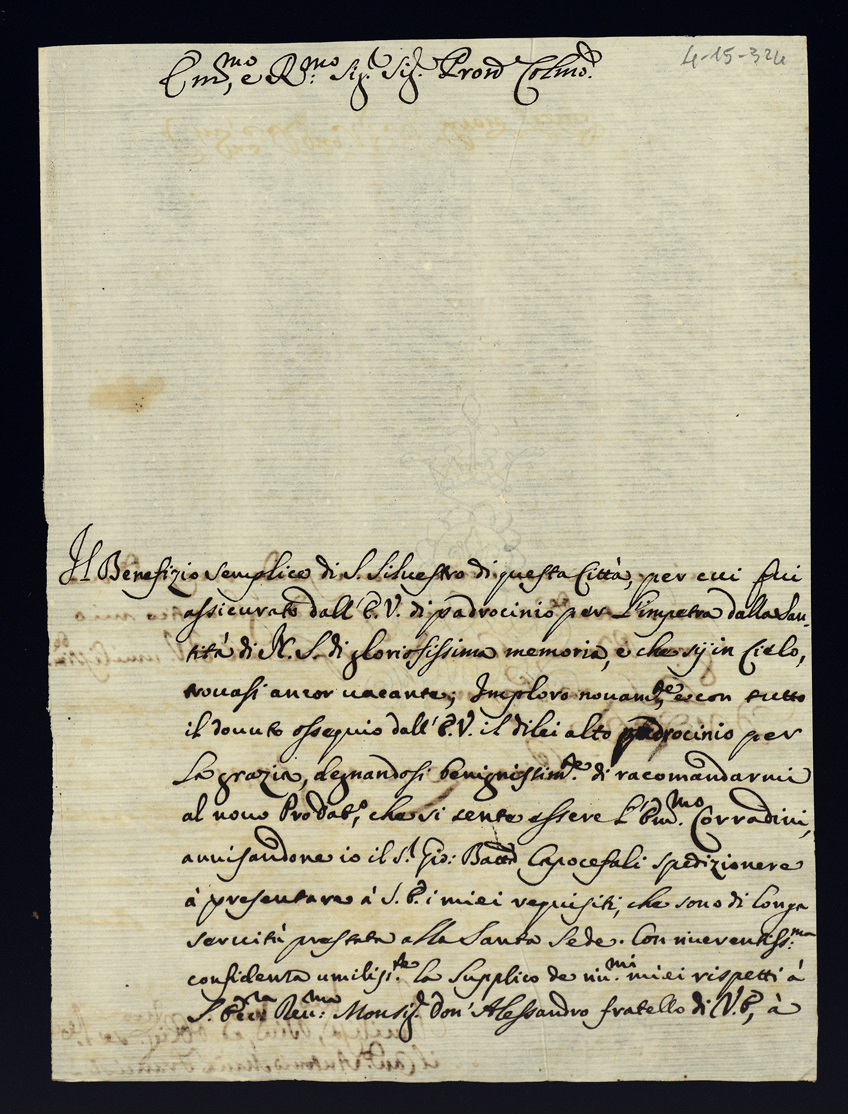 4-15-324
Em.mo, e R.mo Sig.r Sig.r Pron Colmo.
Il Benefizio semplice di S. Silvestro di questa Città, per cui fui
assicurato dall'E.V. di padrocinio per l'impetra dalla San-
tità di N. S. di gloriosissima memoria, e che sij in Cielo,
trovasi ancor vacante; Imploro novam.te, e con tutto
il dovuto ossequio dall'E.V. il di lei alto padrocinio per
la grazia, degnandosi benignissim.te di racomandarmi
al novo ProDat.o, che si sente essere l'Em.mo Corradini,
avvisandone io il S.r Gio: Batta Capocefali spedizionere
à presentare à S. E. i miei requisiti, che sono di longa
servitù prestata alla Santa Sede. Con riverentiss.ma
confidenza umiliss.te la supplico de miei rispetti à
S. Ecc.za Rev.ma Monsig.r Don' Alessandro fratello di V.E., à